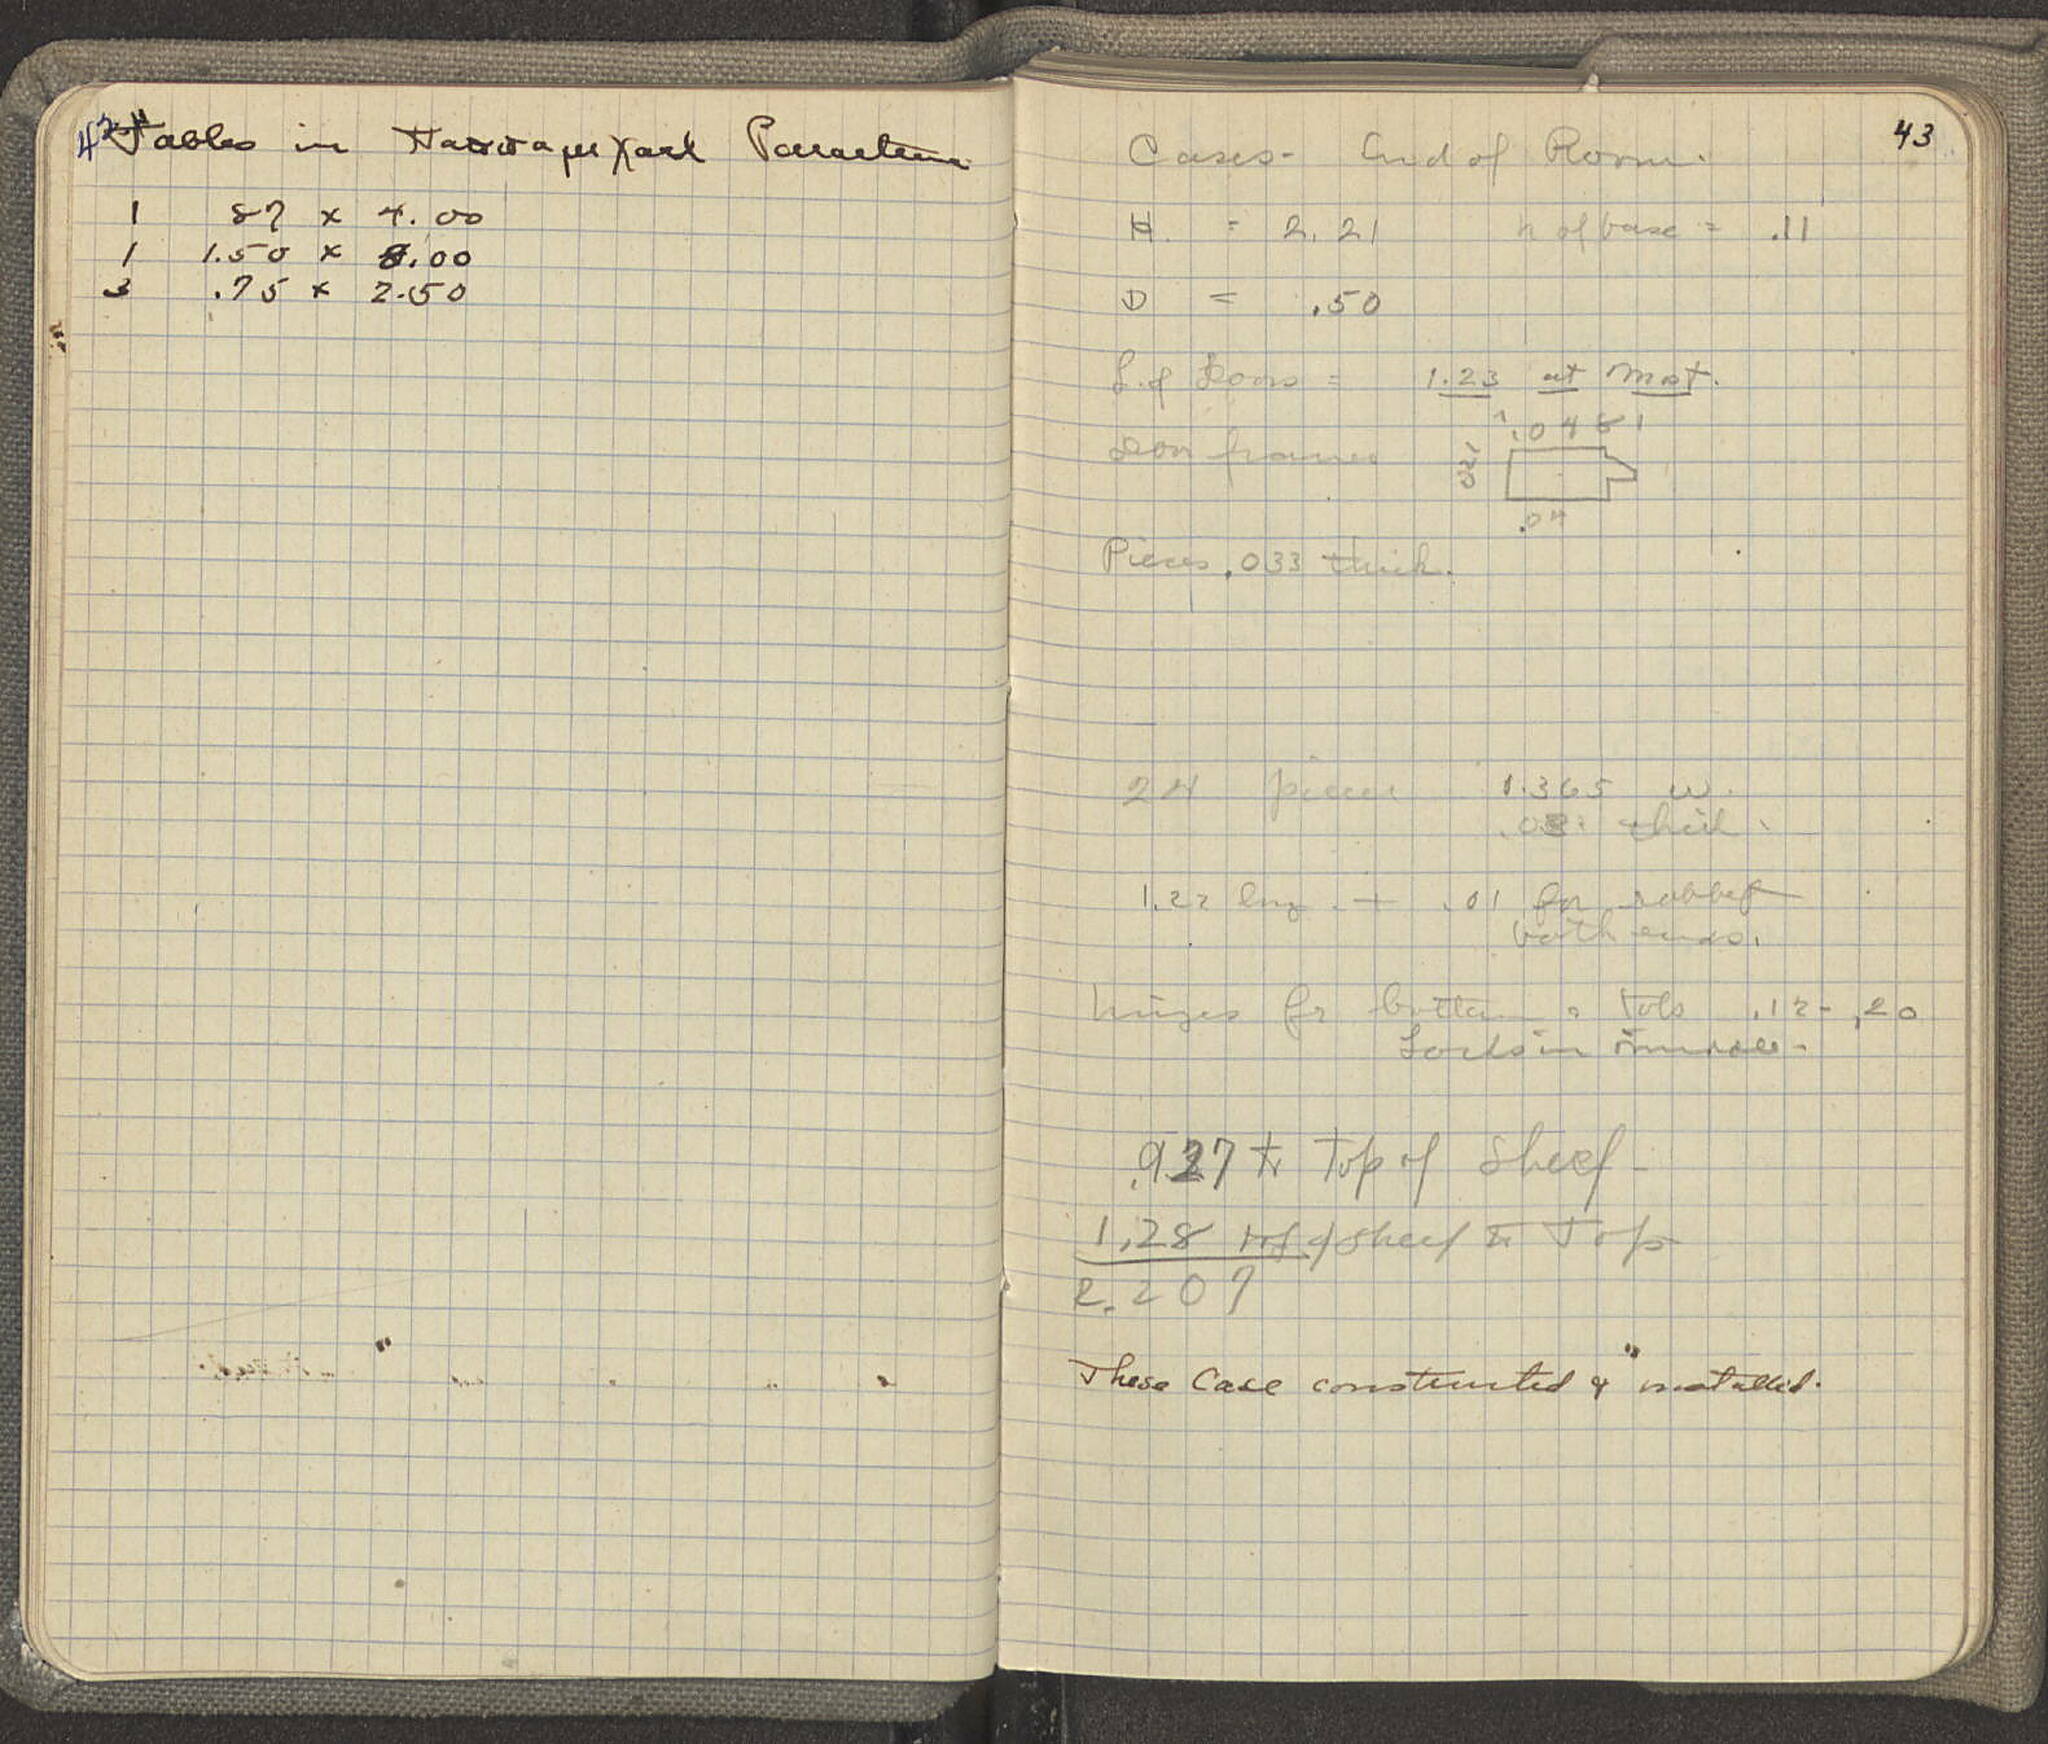 42
Tables in
1 87 x 4.00
1 1.50 x .00
3 .75 x 2.50
43
Cases - End of Room.
H. = 2.21 h of base = .11
D = .50
L. of Doors = 1.23 at most.
.048
Door frames .021
.04
Pieces .033 thick.
24 pieces 1.365 w.
thick.
1.22 long + .01 for rabbet
both ends.
hinges for bottom & tops .12 - .20
Locks in middle -
.927 to Top of Shelf -
1.28 top of Shelf to Top
2.207
These Case constructed & installed.